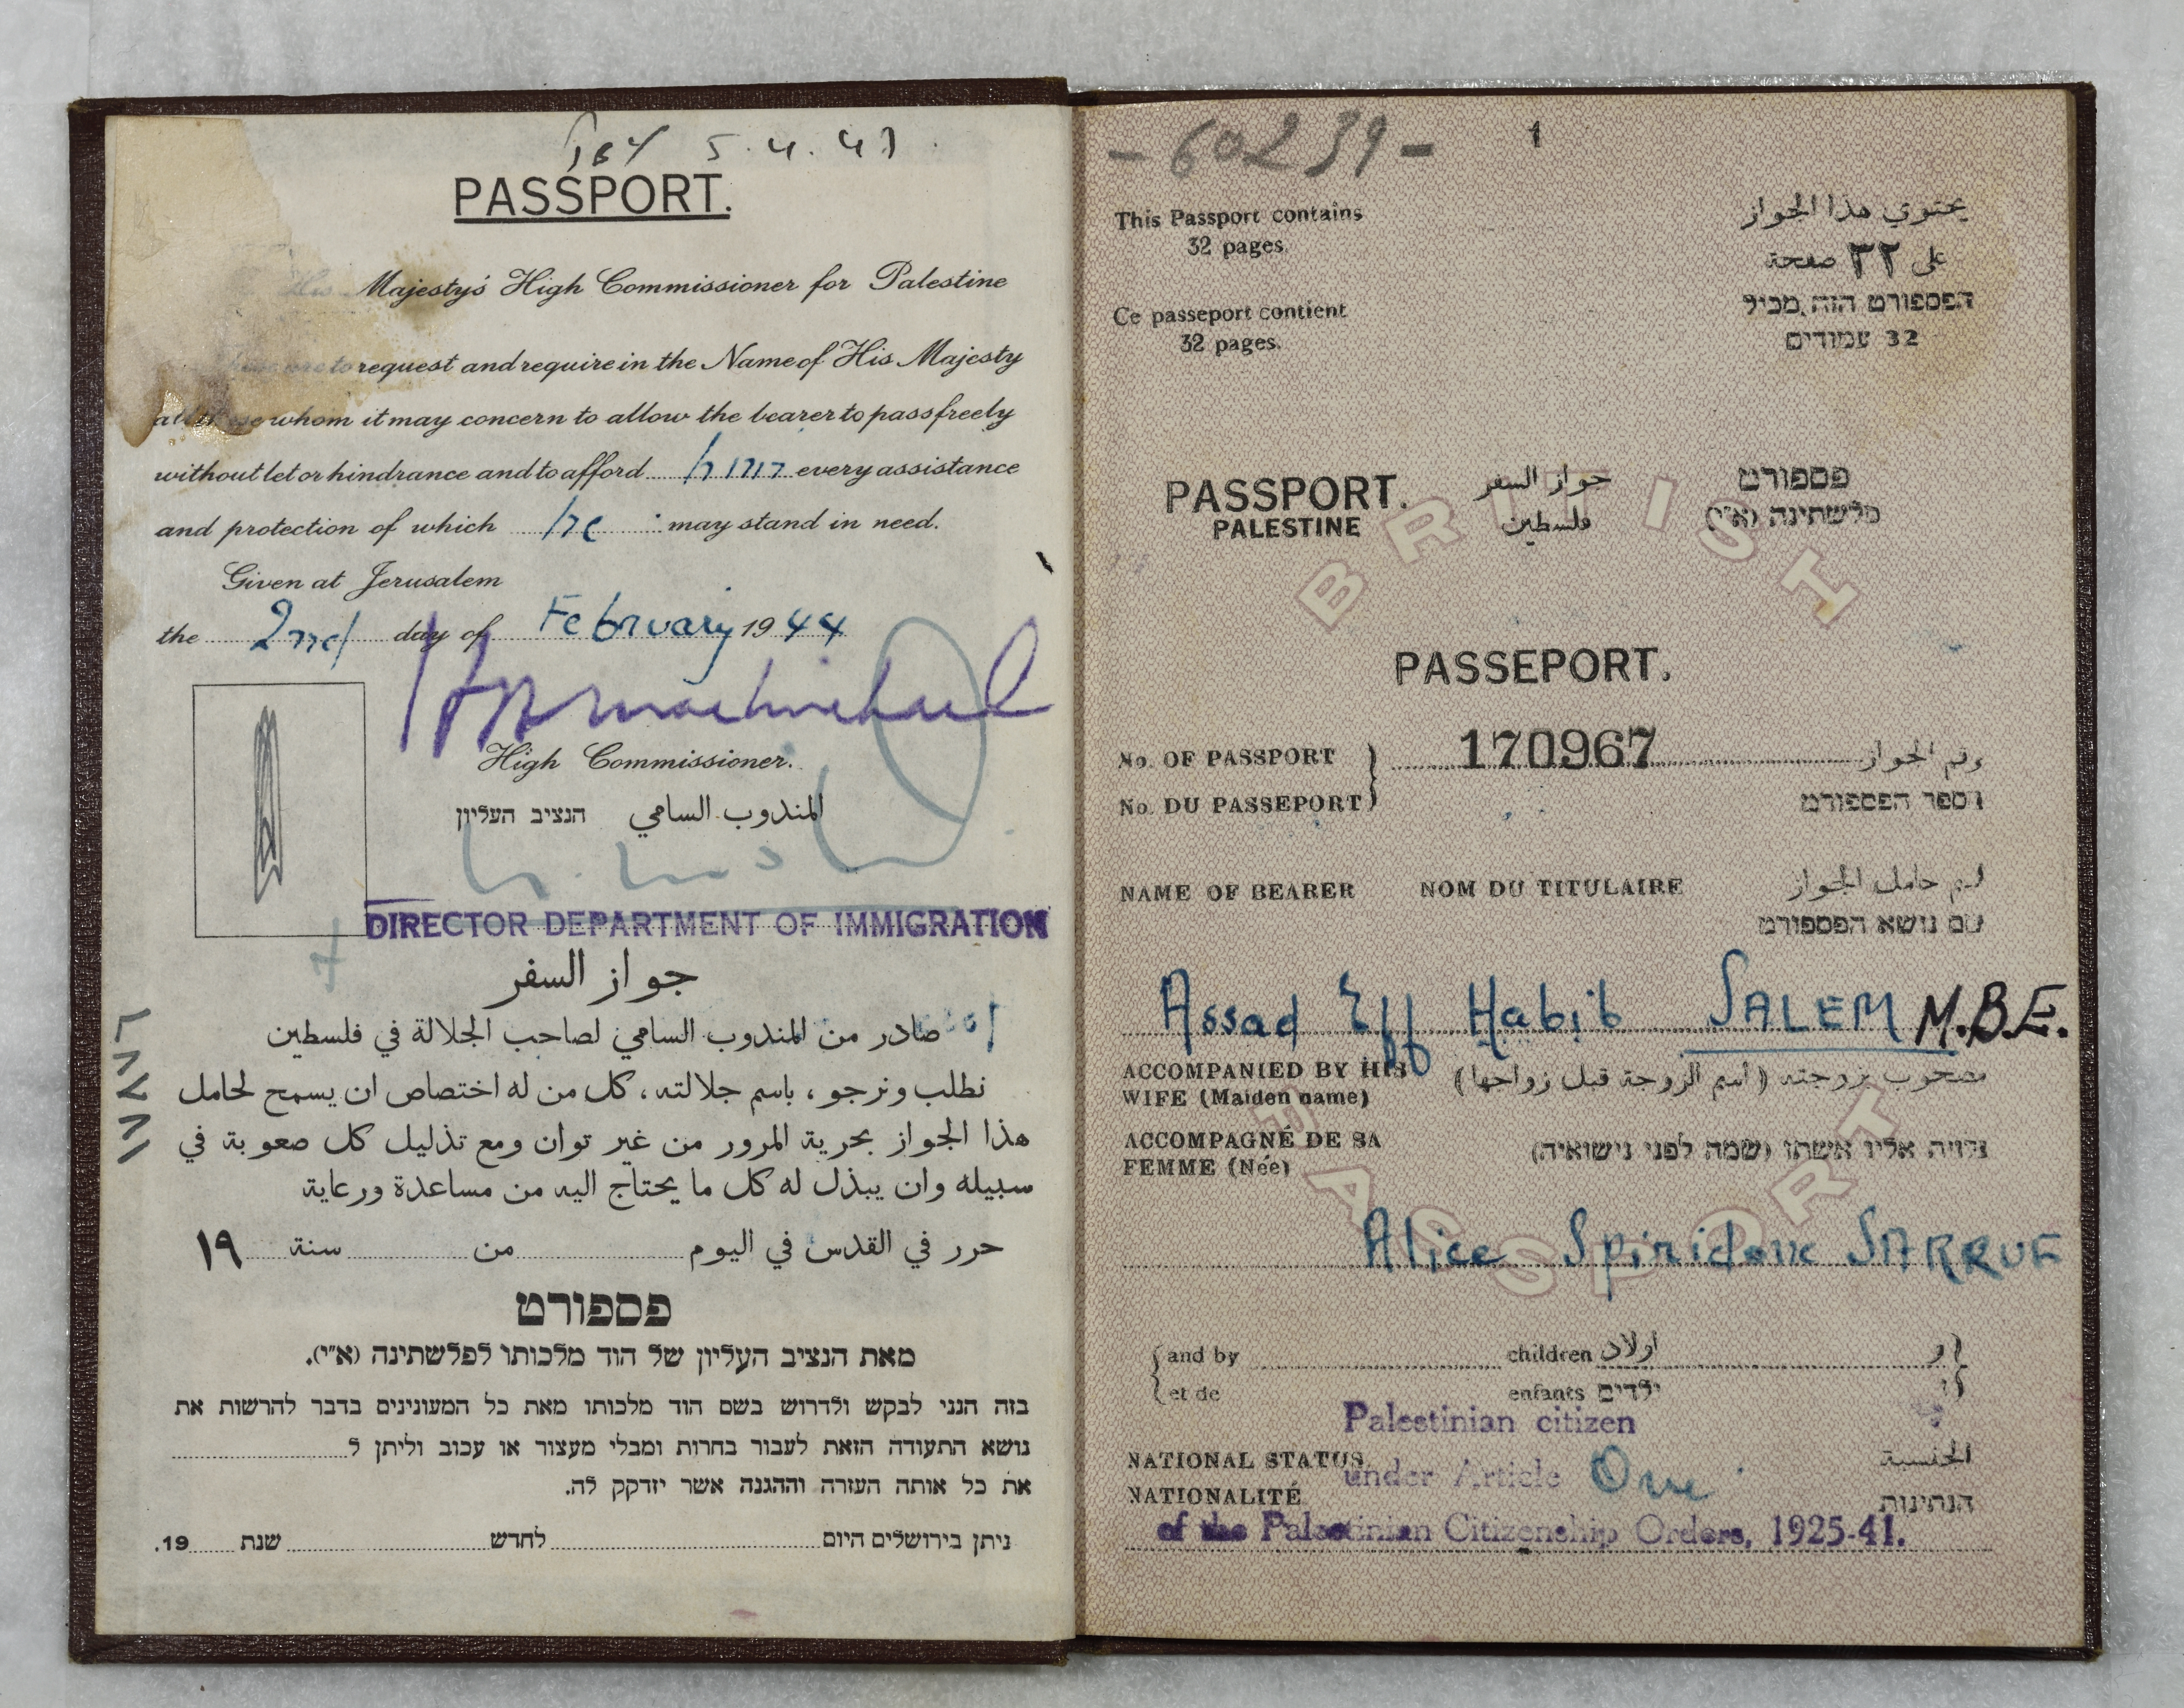 5.4.47
PASSPORT.
His Majesty's High Commissioner for Palestine
to request and require in the Name of His Majesty
whom it may concern to allow the bearer to pass freely
without let or hindrance and to afford him every assistance
and protection of which he may stand in need.
Given at Jerusalem
the 2nd day of February 1944
High Commissioner.
הנציב העליון المندوب السامي
DIRECTOR DEPARTMENT OF IMMIGRATION
جواز السفر
صادر من المندوب السامي لصاحب الجلالة في فلسطين
نطلب ونرجو ، باسم جلالته ، كل من له اختصاص ان يسمح لحامل
هذا الجواز بحرية المرور من غير توان ومع تذليل كل صعوبة في
سبيله وان يبذل له كل ما يحتاج اليه من مساعدة ورعاية
حرر في القدس في اليوم من سنة ١٩
פספורט
מאת הנציב העליון של הוד מלכותו לפלשתינה (א״י).
בזה הנני לבקש ולדרוש בשם הוד מלכותו מאת כל המעונינים בדבר להרשות את
נושא התעודה הזאת לעבור בחרות ומבלי מעצור או עכוב וליתן ל
את כל אותה העזרה וההגנה אשר יזדקק לה.
ניתן בירושלים היום לחדש שנת 19.
- 60239 -
1
This Passport contains
32 pages.
يحتوي هذا الجواز
على ٣٢ صفحة
Ce passeport contient
32 pages.
הפספורט הזה מכיל
32 עמודים
PASSPORT. جواز السفر פספורט
PALESTINE فلسطين פלשתינה (א״י)
BRITISH
PASSEPORT.
No. OF PASSPORT 170967 رقم الجواز
No. DU PASSEPORT מספר הפספורט
NAME OF BEARER NOM DU TITULAIRE اسم حامل الجواز
שם נושא הפספורט
Assad Eff Habib SALEM M.B.E.
ACCOMPANIED BY HIS
WIFE (Maiden name)
مصحوب بزوجته (اسم الزوجة قبل زواجها)
ACCOMPAGNÉ DE SA
FEMME (Née)
נלוית אליו אשתו (שמה לפני נישואיה)
PASSPORT
Alice Spiridon SARRUF
and by children اولاد و
et de enfants ילדים ו
Palestinian citizen
NATIONAL STATUS الجنسية
under Article One
NATIONALITÉ הנתינות
of the Palestinian Citizenship Orders, 1925-41.